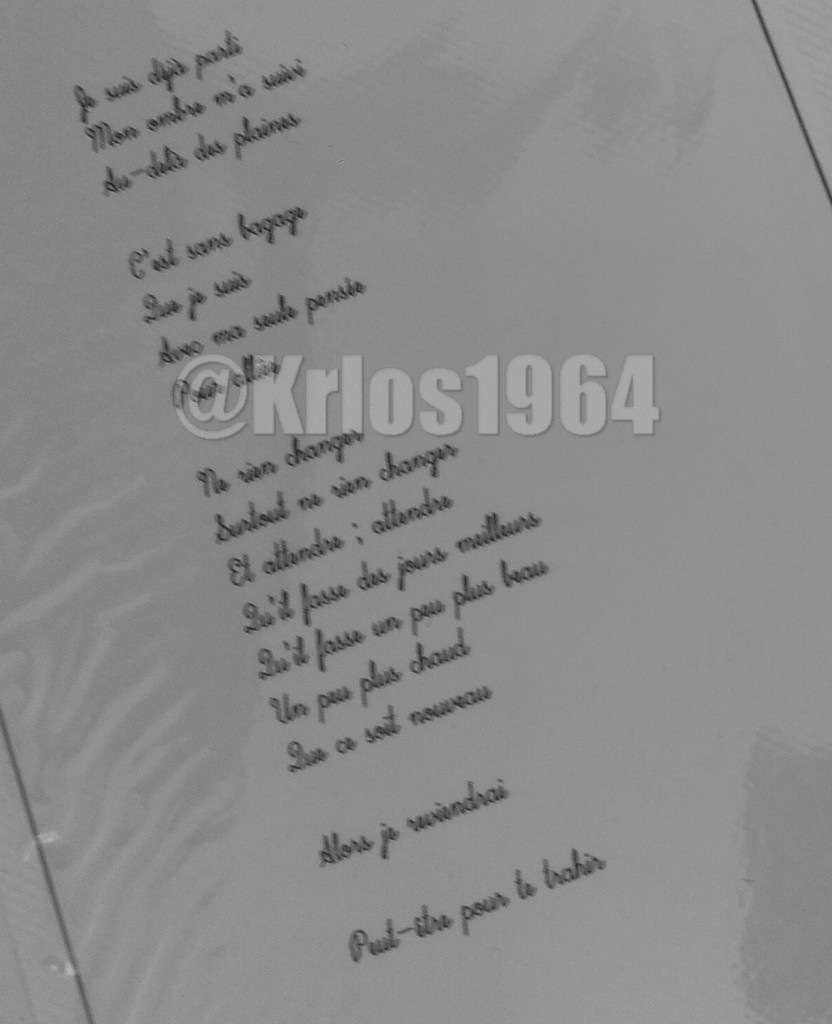 Je suis déjà parti
Mon ombre m'a suivi
Au-delà des plaines
C'est sans bagage
Que je suis
Avec ma seule pensée
Pour alliée
@Krlos1964
Ne rien changer
Surtout ne rien changer
Et attendre ; attendre
Qu'il fasse des jours meilleurs
Qu'il fasse un peu plus beau
Un peu plus chaud
Que ce soit nouveau
Alors je reviendrai
Peut-être pour te trahir